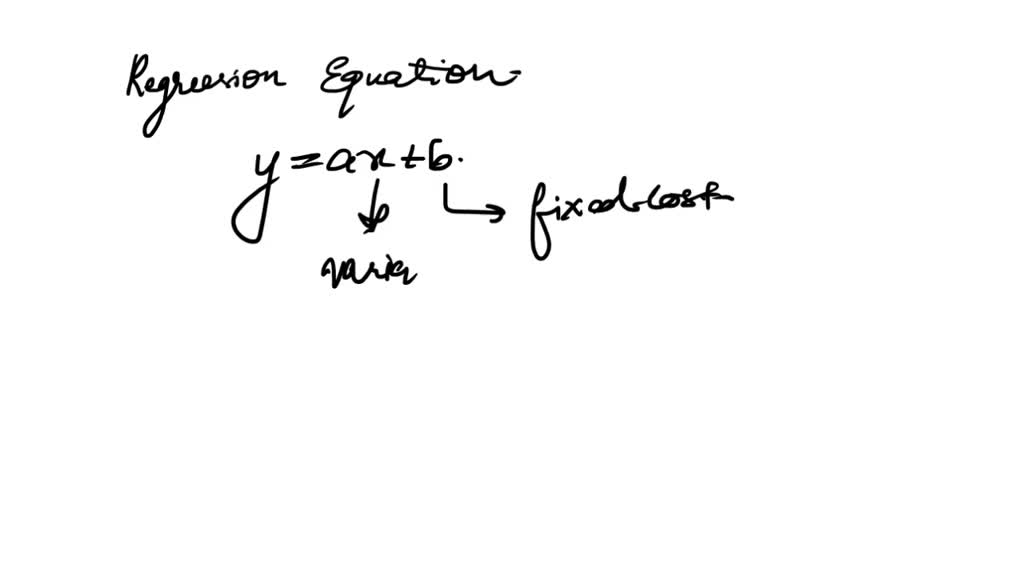 Regression Equation
y = ax + b.
fixed cost
varia